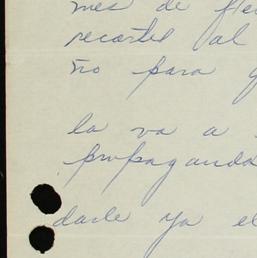 mes de
recortes al
ño para
la va a
propaganda
darle ya el